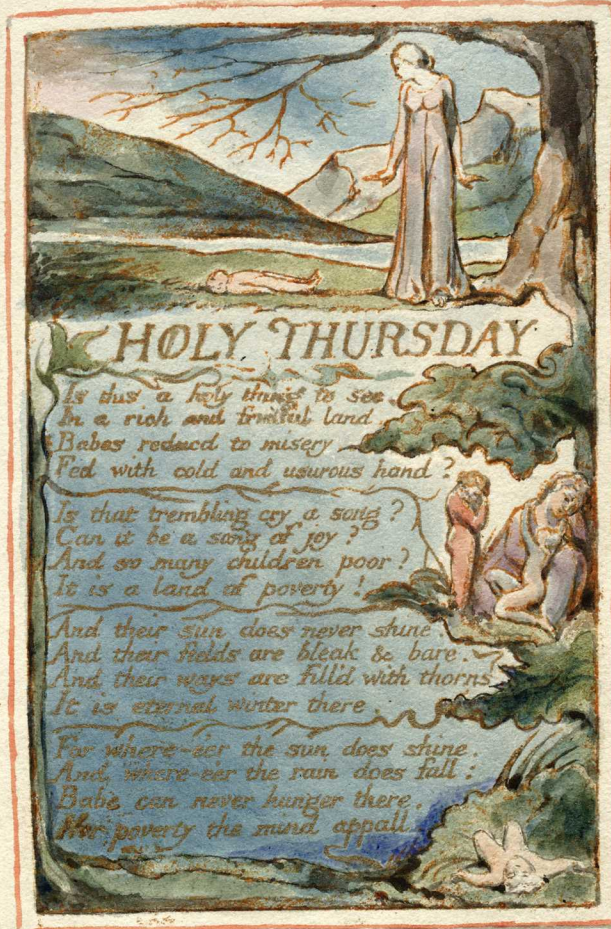 HOLY THURSDAY
Is this a holy thing to see.
In a rich and fruitful land.
Babes reducd to misery
Fed with cold and usurous hand?
Is that trembling cry a song?
Can it be a song of joy?
And so many children poor?
It is a land of poverty!
And their sun does never shine.
And their fields are bleak & bare.
And their ways are fill'd with thorns
It is eternal winter there.
For where-e'er the sun does shine.
And where-e'er the rain does fall:
Babe can never hunger there,
Nor poverty the mind appall.